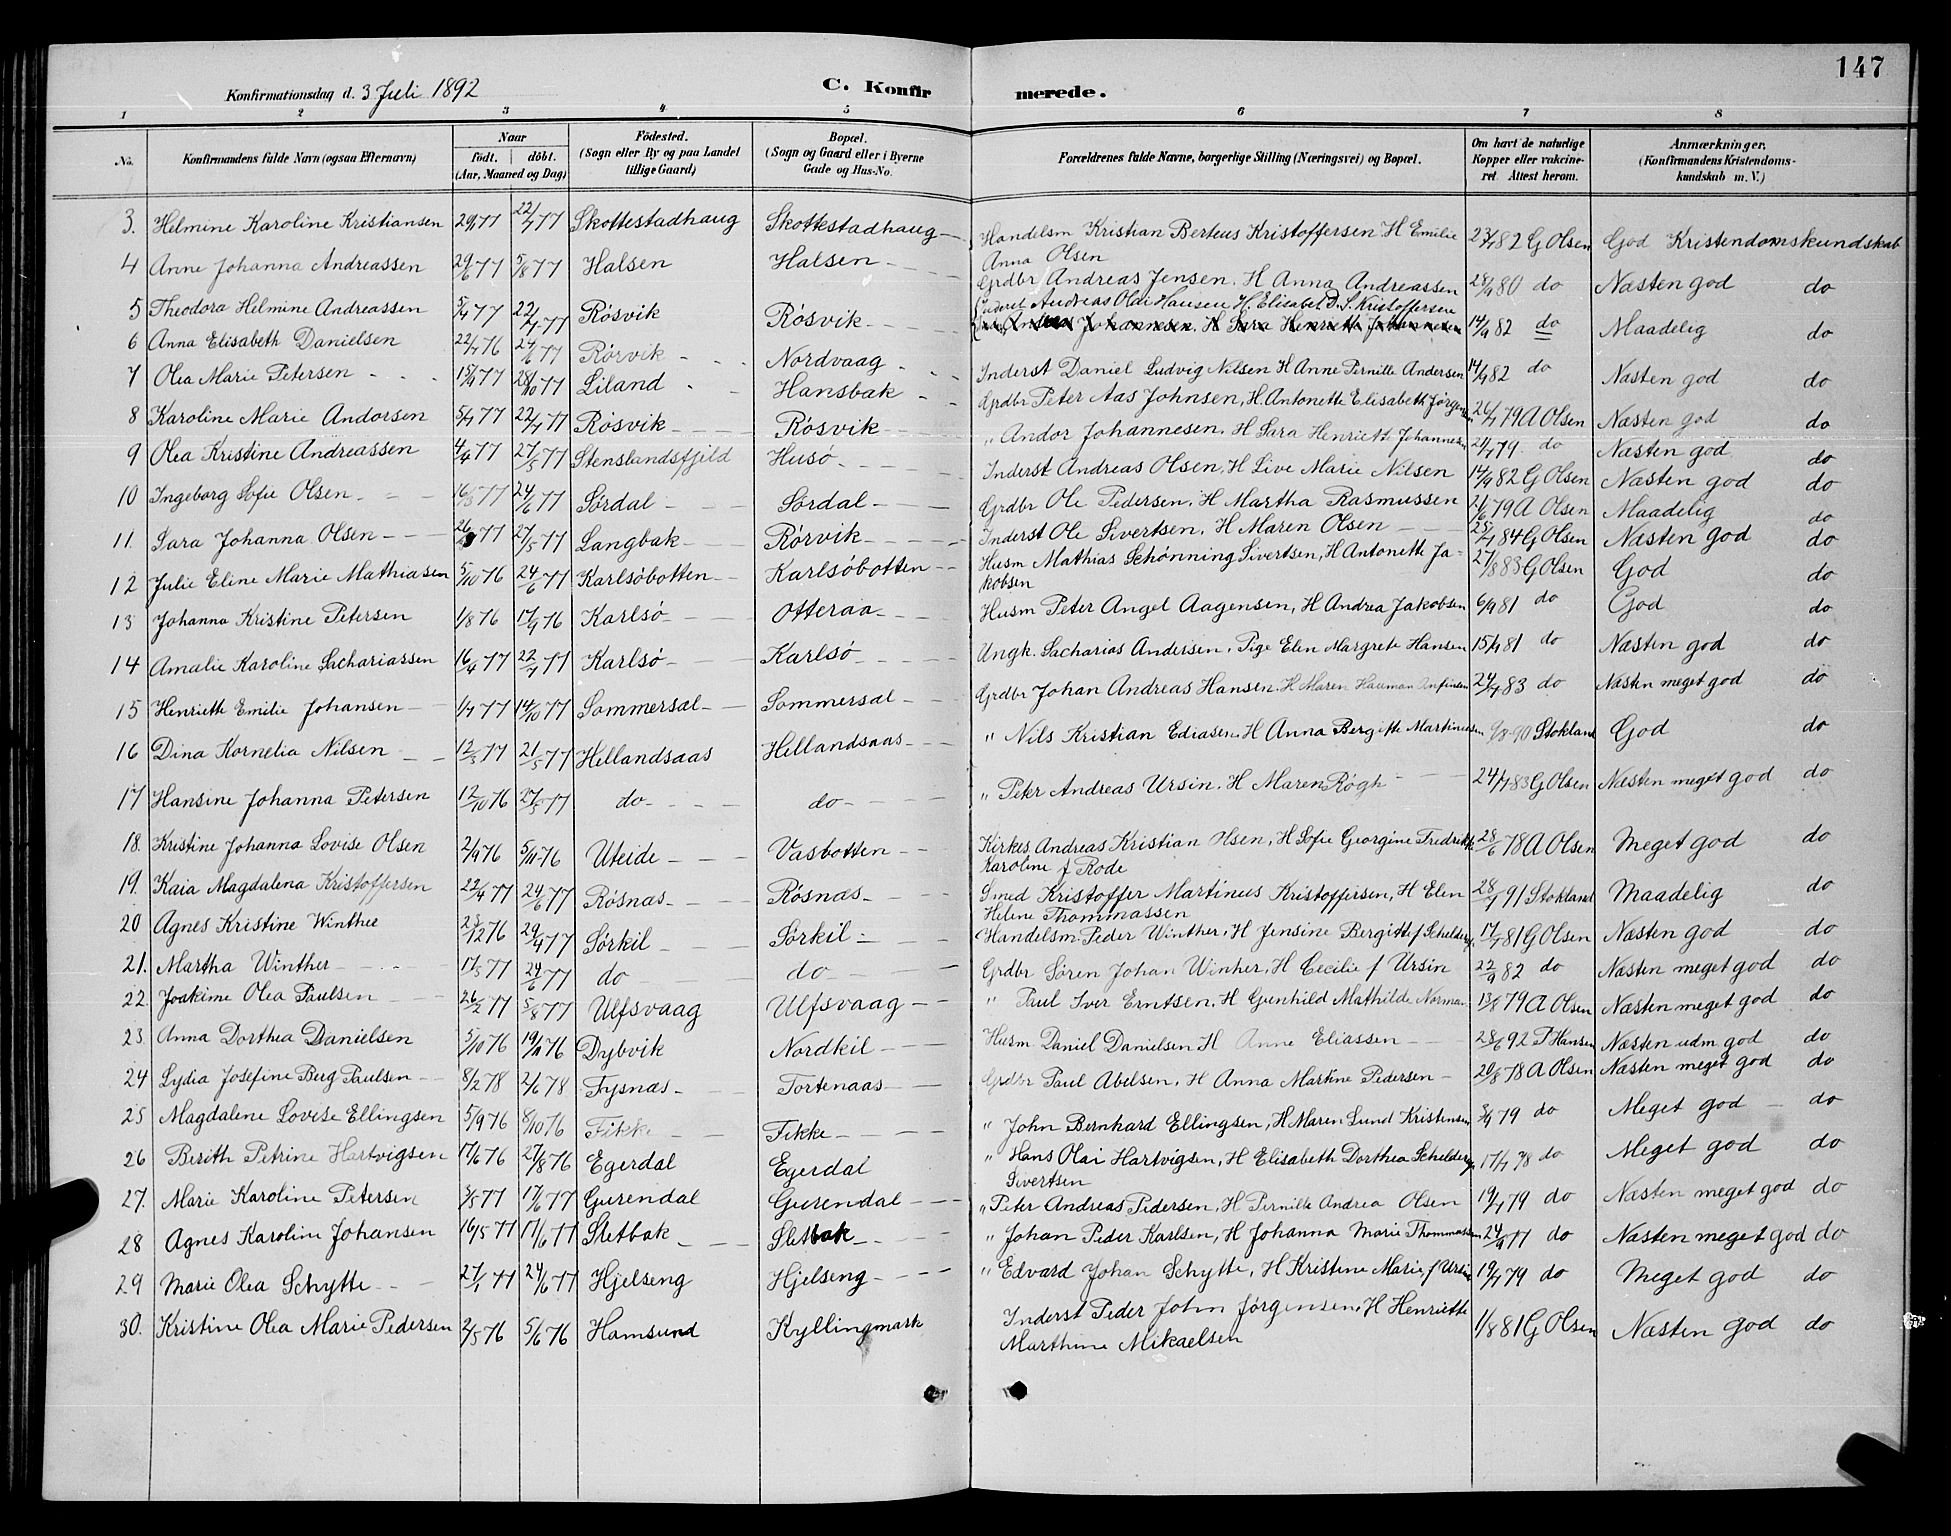 147
Konfirmationsdag d. 3 Juli 1892 C. Konfirmerede.
1 2 3 4 5 6 7 8
No. Konfirmandens fulde Navn (ogsaa Efternavn) Naar født. døbt. (Aar, Maaned og Dag) Fødested. (Sogn eller By og paa Landet tillige Gaard) Bopæl. (Sogn og Gaard eller i Byerne Gade og Hus-No. Forældrenes fulde Navne, borgerlige Stilling (Næringsvei) og Bopæl. Om havt de naturlige Kopper eller vakcineret. Attest herom. Anmærkninger. (Konfirmandens Kristendomskundskab m. V.)
3. Helmine Karoline Kristiansen 22/7 77 Skottestadhaug Skottestadhaug Handelsm Kristian Berteus Kristoffersen H Emilie G Olsen God Kristendomskundskab
Anna Olsen
4 Anne Johanna Andreassen 29/6 77 5/8 77 Halsen Halsen Grdbr Andreas Jensen. H Anna Andreassen 80 do Næsten god do
5 Theodora Helmine Andreassen 5/4 77 22/4 77 Røsvik Røsvik Inderst Andreas Olai Hansen H. Elisabet D. S. Kristoffersen
Johannesen. H Sara Henriette Johannesen 14/9 82 do Maadelig do
6 Anna Elisabeth Danielsen 24/6 77 Rørvik Nordvaag Inderst Daniel Ludvig Nilsen H Anne Pernille Andersen 14/9 82 do Næsten god do
7 Olea Marie Petersen 28/10 77 Liland Hansbak Grdbr Peter Aas Johnsen, H. Antonette Elisabeth Jørgensen 79 A Olsen Næsten god do
8 Karoline Marie Andorsen 5/4 77 22/4 77 Røsvik Røsvik " Andor Johannesen. H Sara Henriett Johannesen 79 do Næsten god do
9 Olea Kristine Andreassen 4/4 77 27/5 77 Stenslandsfjeld Husø Inderst Andreas Olsen, H Live Marie Nilsen 14/9 82 G Olsen Næsten god do
10 Ingeborg Sofie Olsen 16/5 77 24/6 77 Sørdal Sørdal Grdbr Ole Pedersen, H Martha Rasmussen 79 A Olsen Maadelig do
11 Sara Johanna Olsen 77 27/5 77 Langbak Rørvik Inderst Ole Sivertsen, H Maren Olsen 84 G Olsen Næsten god do
12 Julie Eline Marie Mathiasen 5/10 76 24/6 77 Karlsøbotten Karlsøbotten Husm Mathias Schønning Sivertsen, H Antonette Ja- 27/8 83 G Olsen God do
kobsen
13 Johanna Kristine Petersen 1/8 76 17/9 76 Karlsø Otteraa Husm Peter Angel Aagensen, H Andrea Jakobsen 6/9 81 do God do
14 Amalie Karoline Sachariassen 16/4 77 22/7 77 Karlsø Karlsø Ungk. Sacharias Andersen, Pige Elen Margrete Hansen 81 do Næsten god do
15 Henriette Emilie Johansen 1/7 77 14/10 77 Sommersal Sommersal Grdbr Johan Andreas Hansen. H Maren Hauman 83 do Næsten meget god do
16 Dina Kornelia Nilsen 12/3 77 21/5 77 Hellandsaas Hellandsaas " Nils Kristian Ediasen. H Anna Bergitte Martinussen 90 Stokland God do
17 Hansine Johanna Petersen 12/10 76 27/5 77 do do " Peter Andreas Ursin. H Maren Røgh 83 G Olsen Næsten meget god do
18. Kristine Johanna Lovise Olsen 2/9 76 5/11 76 Uteide Vasbotten Kirkes Andreas Kristian Olsen, H Sofie Georgine Fredrikke 28/6 78 A Olsen Meget god do
Karoline f Rode
19. Kaia Magdalena Kristoffersen 22/4 77 24/6 77 Røsnæs Røsnæs Smed Kristoffer Martinus Kristoffersen, H Elen 91 Stokland Maadelig do
Helene Thommassen
20 Agnes Kristine Winther 76 29/4 77 Sørkil Sørkil Handelsm. Peder Winther. H Jensine Bergitte f Schelderup 81 G Olsen Næsten god do
21. Martha Winther 77 24/6 77 do do Grdbr Søren Johan Winther, H Cecilie f Ursin 22/9 82 do Næsten meget god do
22. Joakime Olea Paulsen 26/2 77 5/8 77 Ulfsvaag Ulfsvaag " Paul Iver Erntsen, H Gunhild Mathilde Norman 79 A Olsen Næsten meget god do
23. Anna Dorthea Danielsen 5/10 76 76 Dybvik Nordkil Husm Daniel Danielsen H Anne Eliassen 28/6 92 P Hansen Næsten udm god do
24 Lydia Josefine Berg Paulsen 8/2 78 2/6 78 Fysnæs Tortenaas Grdbr Paul Abelsen, H Anna Martine Pedersen 20/8 78 A Olsen Næsten meget god do
25 Magdalene Lovise Ellingsen 5/9 76 8/10 76 Fikke Fikke " John Bernhard Ellingsen, H Maren Lund Kristensen 79 do Meget god do
26 Berith Petrine Hartvigsen 17/6 76 27/8 76 Egerdal Egerdal " Hans Olai Hartvigsen, H Elisabeth Dorthea Schelderup 78 do Meget god do
Sivertsen
27. Marie Karoline Petersen 3/5 77 17/6 77 Gurendal Gurendal " Peter Andreas Pedersen, H Pernille Andrea Olsen 79 do Næsten meget god do
28 Agnes Karoline Johansen 16/5 77 17/6 77 Sletbak Sletbak " Johan Peder Karlsen, H Johanna Marie Thommassen 24/9 77 do Næsten meget god do
29 Marie Olea Schytte 77 24/6 77 Hjelseng Hjelseng " Edvard Johan Schytte, H Kristine Marie f Ursin 79 do Meget god do
30. Kristine Olea Marie Pedersen 2/5 76 5/6 76 Hamsund Kyllingmark Inderst Peder John Jørgensen. H Henriette 1/8 81 G Olsen Næsten god do
Marthine Mikaelsen